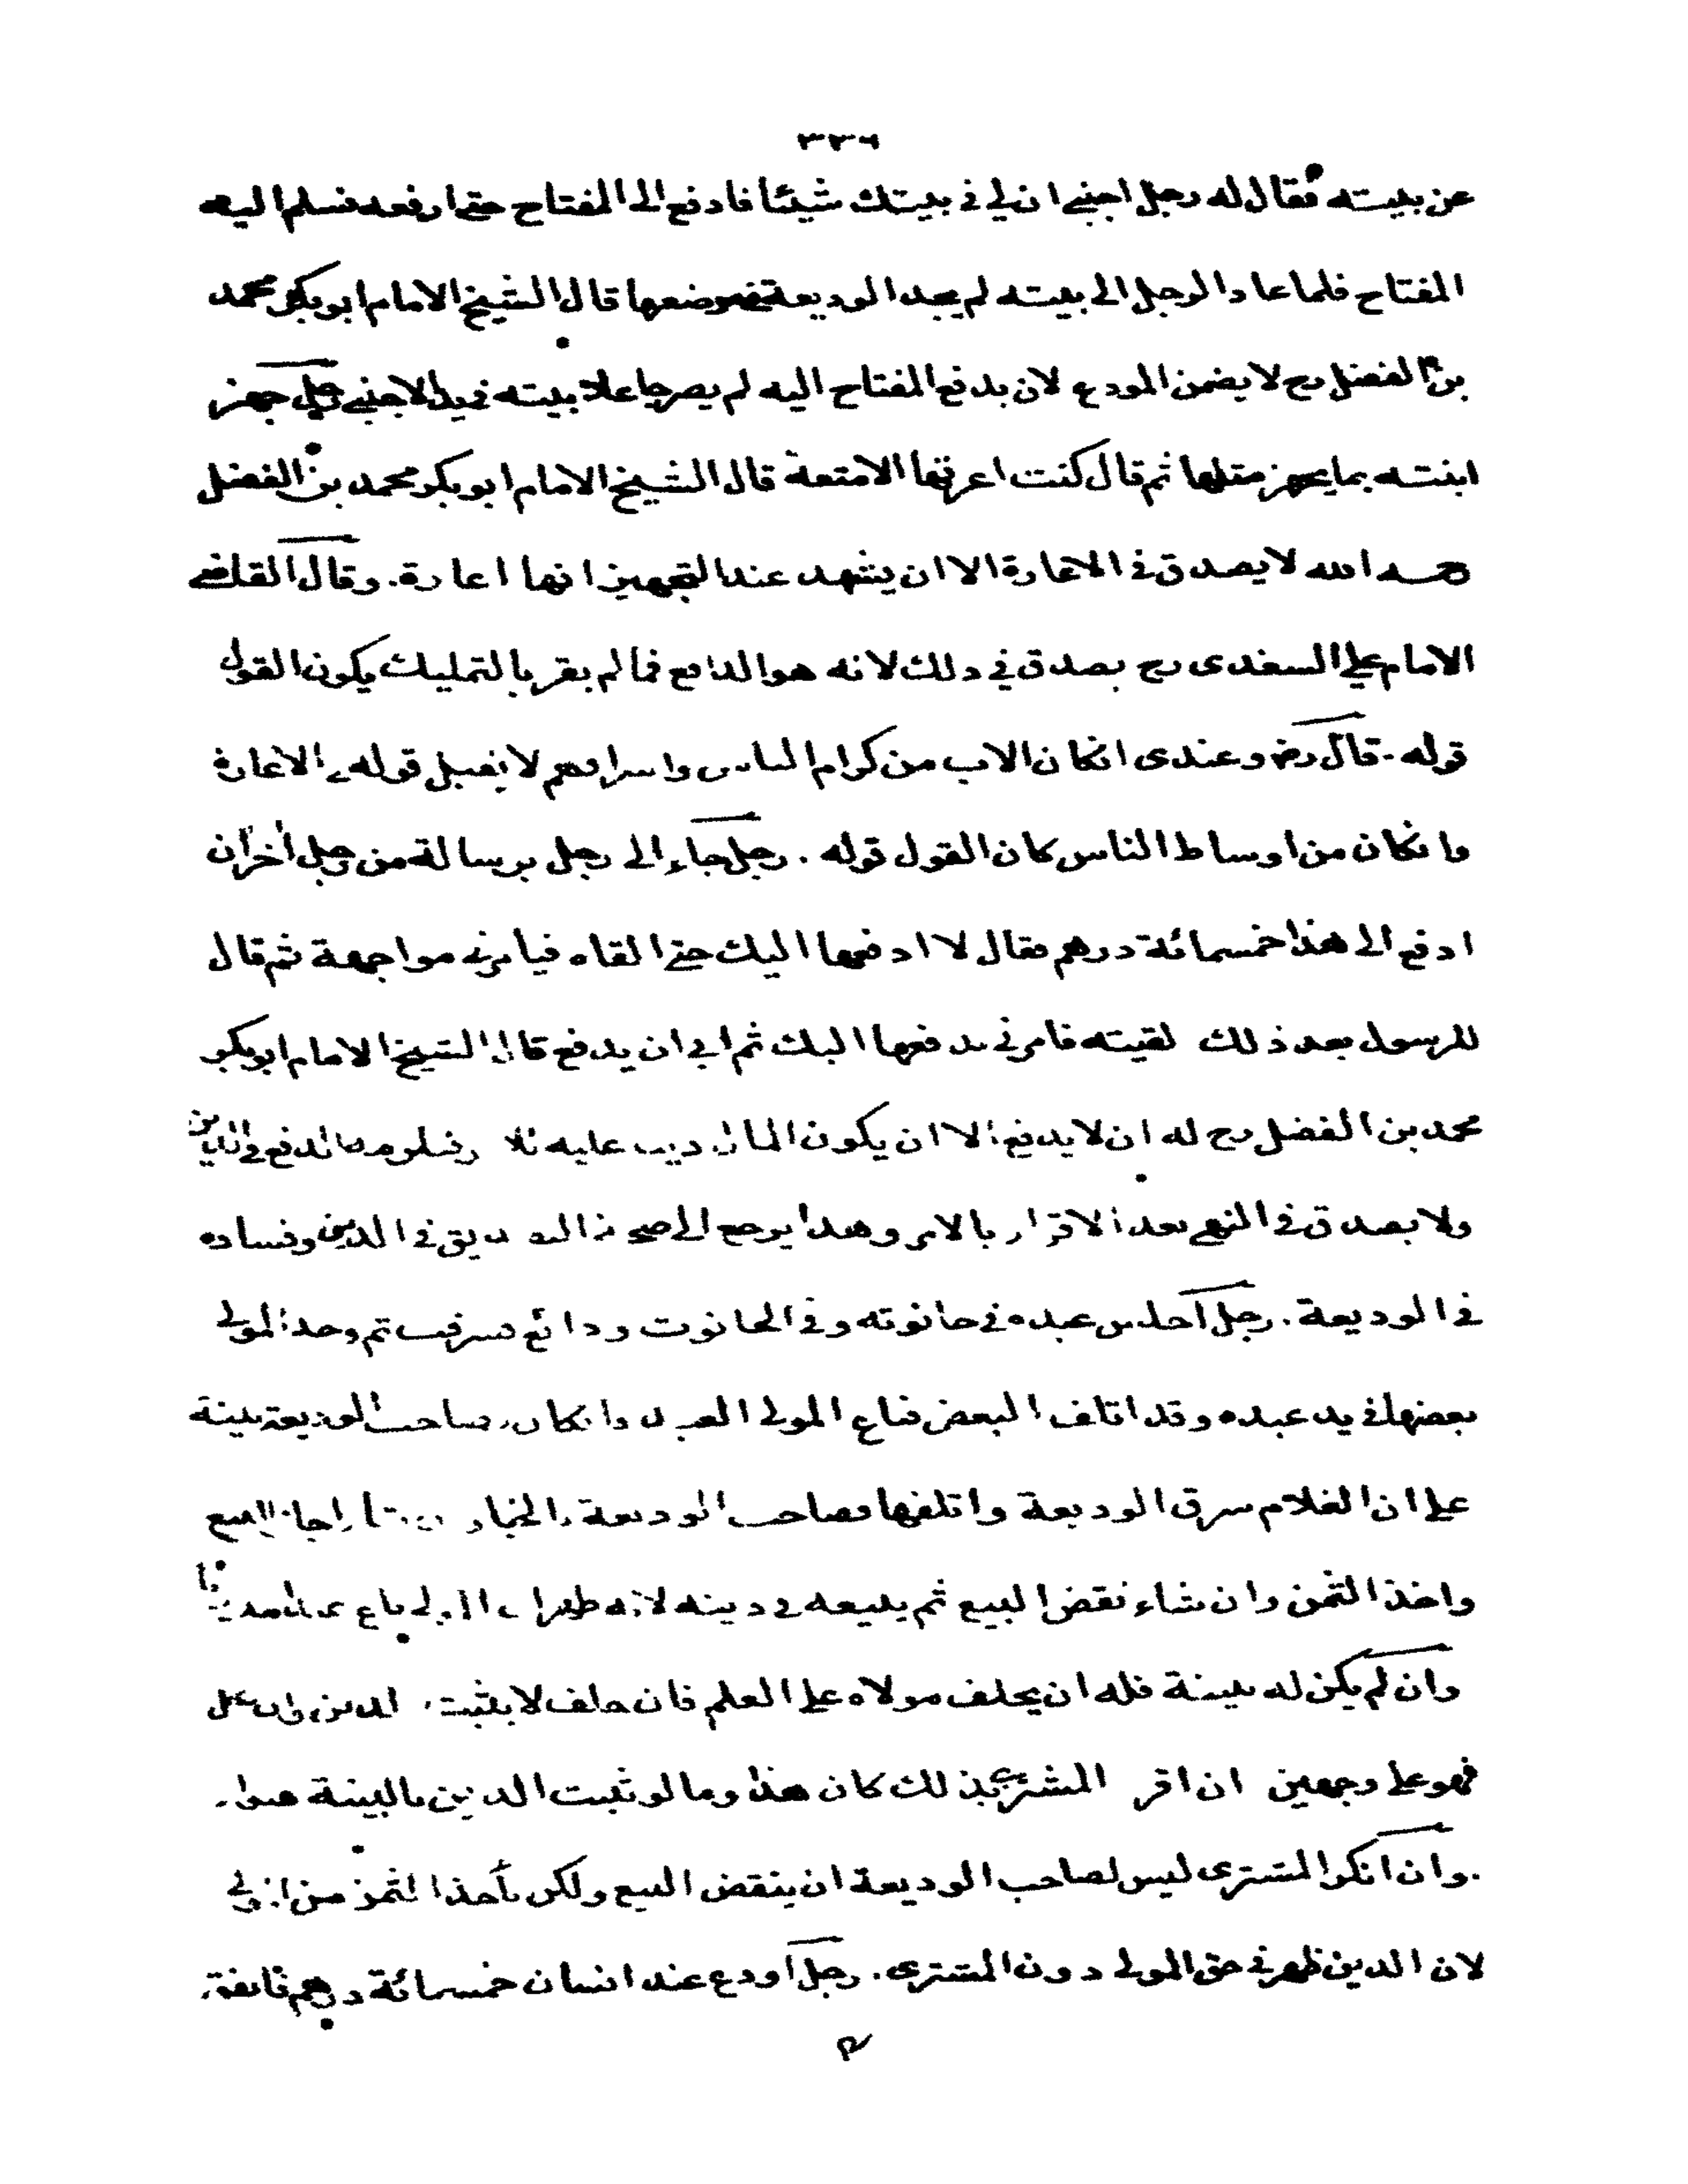 ٣٣٦
عن بيته فقال له رجل اجنبي ان لي في بيتك شيئا فادفع الى المفتاح حتى ارفعه فسلم اليه
المفتاح فلما عاد الرجل الى بيته لم يجد الوديعة في موضعها قال الشيخ الامام ابو بكر محمد
بن الفضل رح لا يضمن المودع لان بدفع المفتاح اليه لم يصر جاعلا بيته في يد الاجنبي رجل جهز
ابنته بما يجهز مثلها ثم قال كنت اعرتها الامتعة قال الشيخ الامام ابو بكر محمد بن الفضل
رحمه الله لا يصدق في الاعارة الا ان يشهد عند التجهيز انها اعارة. وقال القاضي
الامام علي السغدى رح يصدق في ذلك لانه هو الدافع فما لم يقر بالتمليك يكون القول
قوله. قال رض وعندى انكان الاب من كرام الناس واشرافهم لا يقبل قوله في الاعارة
وانكان من اوساط الناس كان القول قوله. رجل جاء الى رجل برسالة من رجل آخر ان
ادفع الى هذا خمسمائة درهم فقال لا ادفعها اليك حتى القاه فيامرني مواجهة ثم قال
للرسول بعد ذلك لقيته فامرني بدفعها اليك ثم ابى ان يدفع قال الشيخ الامام ابو بكر
محمد بن الفضل رح له ان لا يدفع الا ان يكون المال دينا عليه الدفع في الدين
ولا يصدق في النهي بعد الاقرار بالامر وهذا يرجع الى صحة التصديق في الدين وفساده
في الوديعة. رجل اجلس عبده في حانوته وفي الحانوت ودائع فسرقت ثم وجد المولى
بعضها في يد عبده وقد اتلف البعض فباع المولى العبد وانكان لصاحب الوديعة بينة
على ان الغلام سرق الوديعة واتلفها فصاحب الوديعة بالخيار اجاز البيع
واخذ الثمن وان شاء نقض البيع ثم يبيعه في دينه لانه ظهر ان المولى باع عبدا مديونا
وان لم يكن له بينة فله ان يحلف مولاه على العلم فان حلف لا يثبت الدين وان نكل
فهو على وجهين ان اقر المشتري بذلك كان هذا وما لو ثبت الدين بالبينة سواء
وان انكر المشترى ليس لصاحب الوديعة ان ينقض البيع ولكن يأخذ الثمن من المولى
لان الدين ظهر في حق المولى دون المشترى. رجل اودع عند انسان خمسمائة درهم